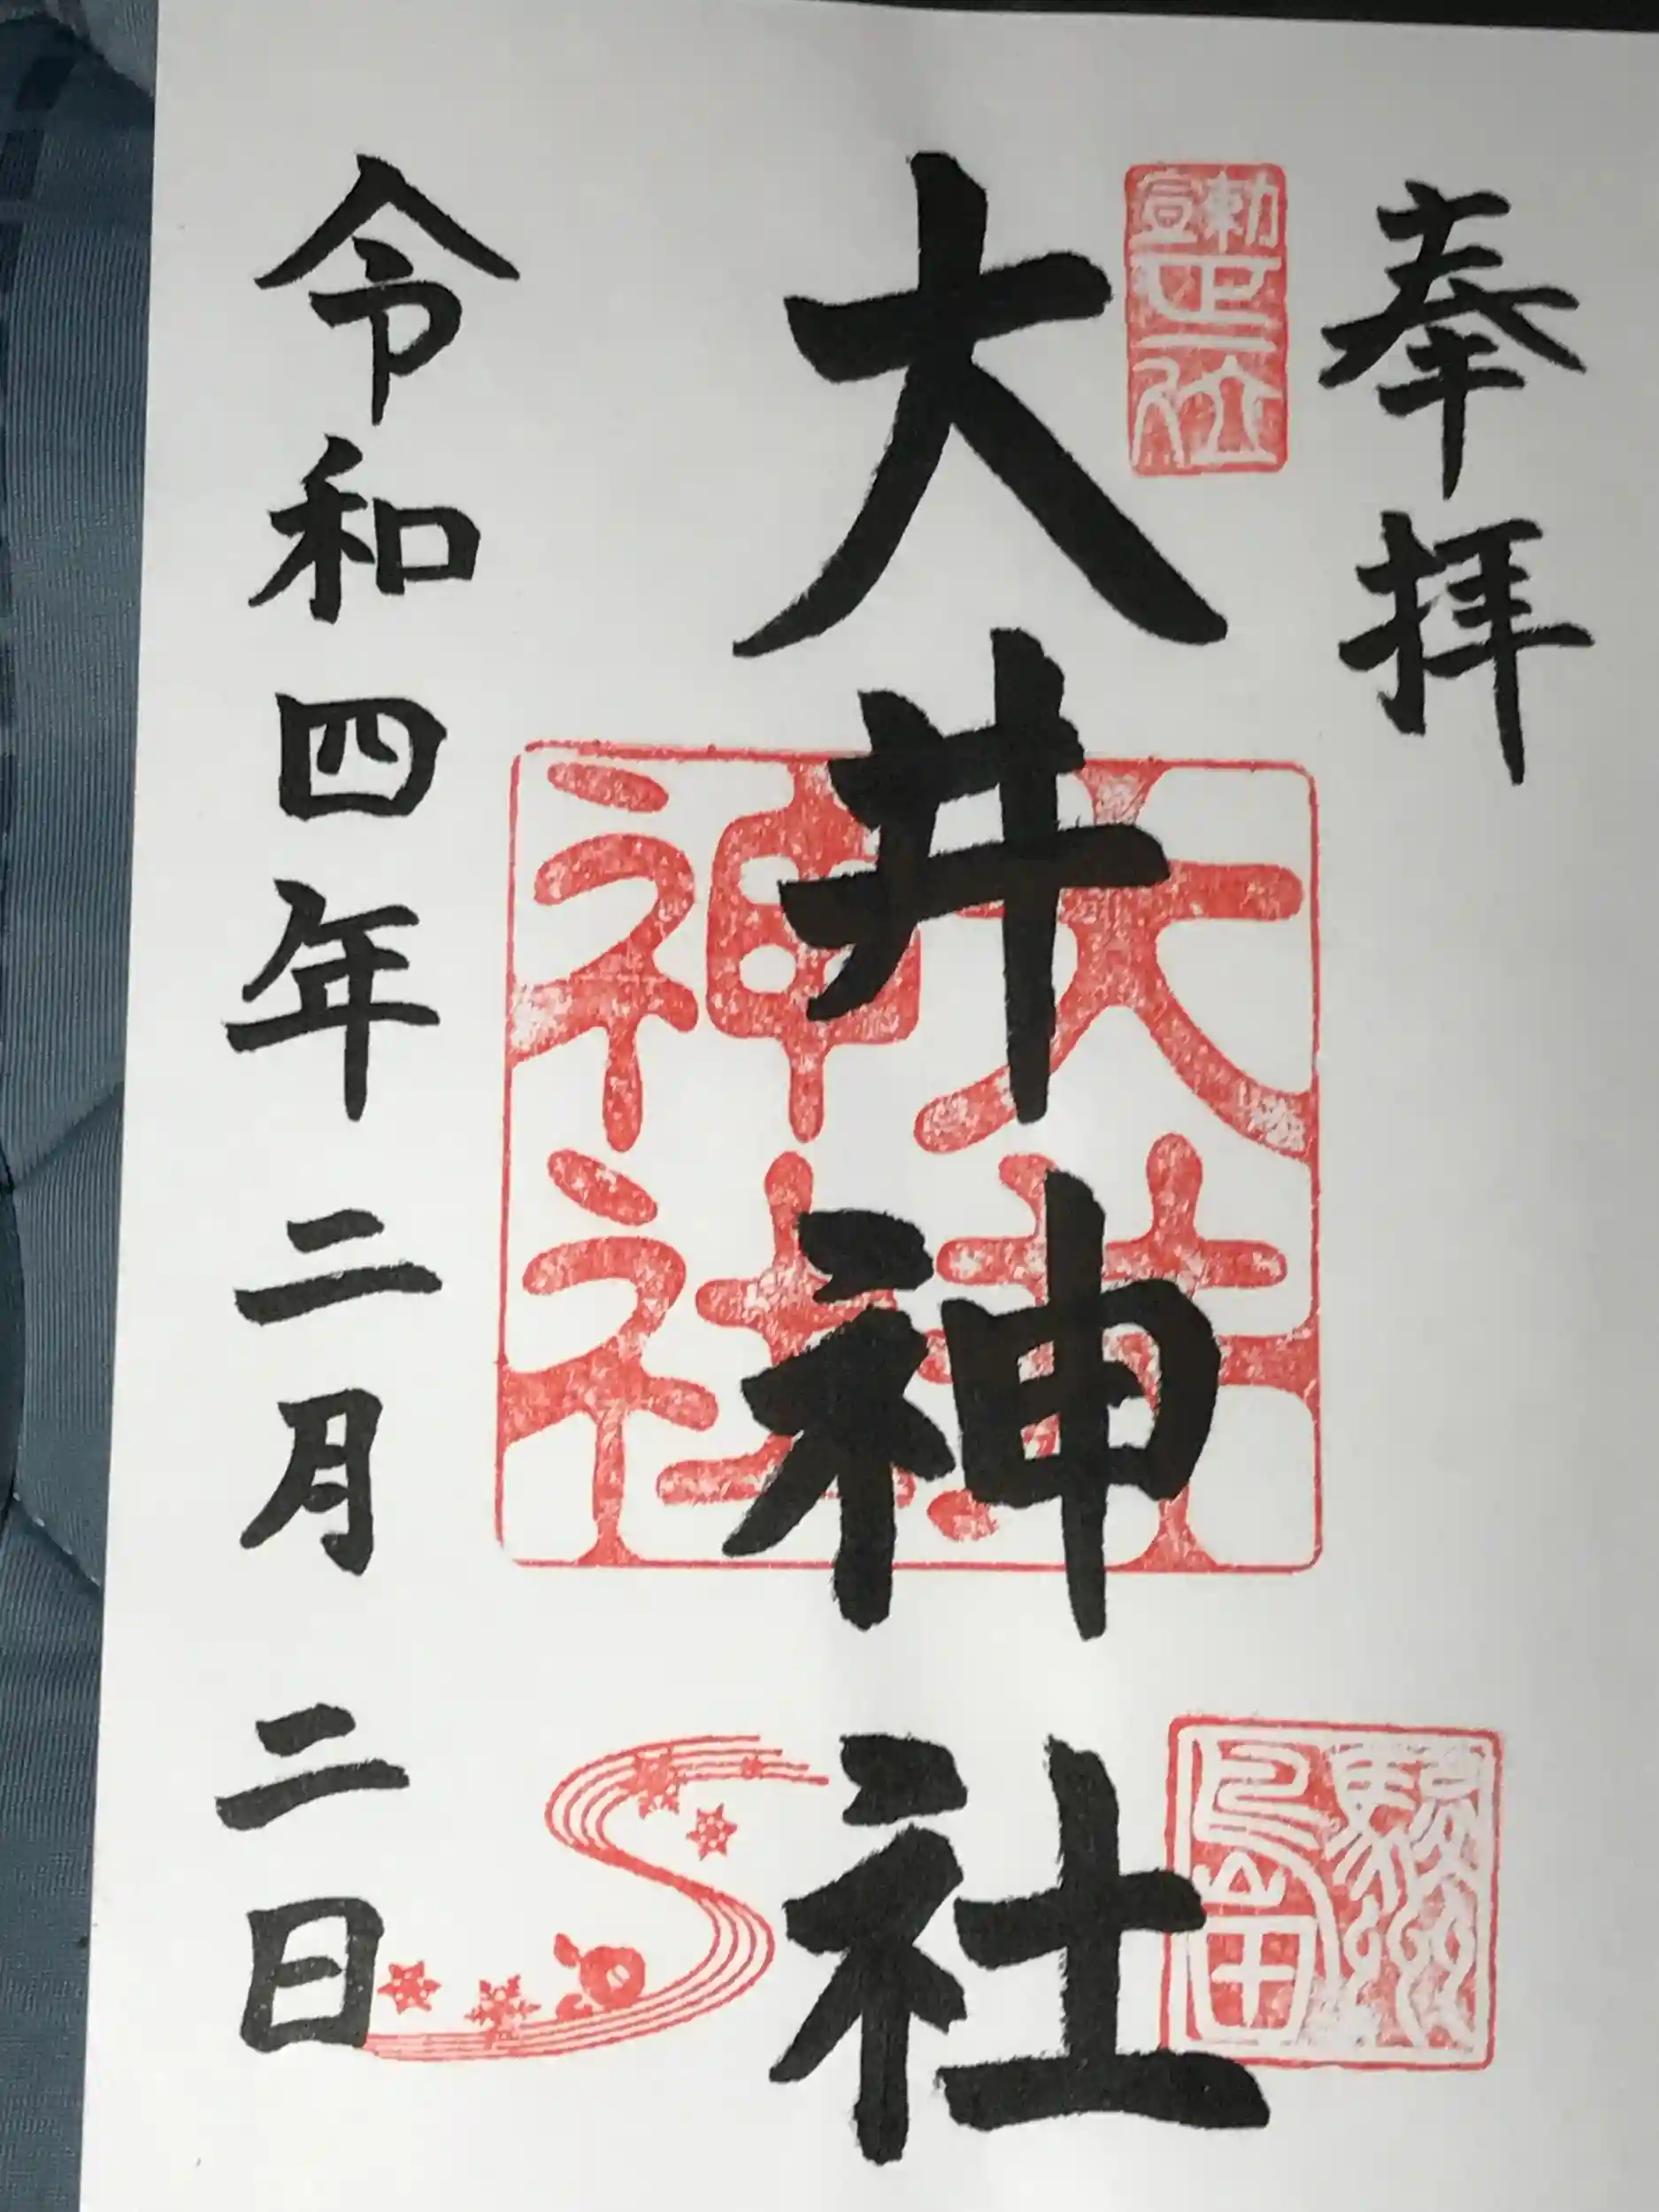 奉拝
勅宣
正一位
大井神社
大井
神社
駿州
島田
令和四年二月二日